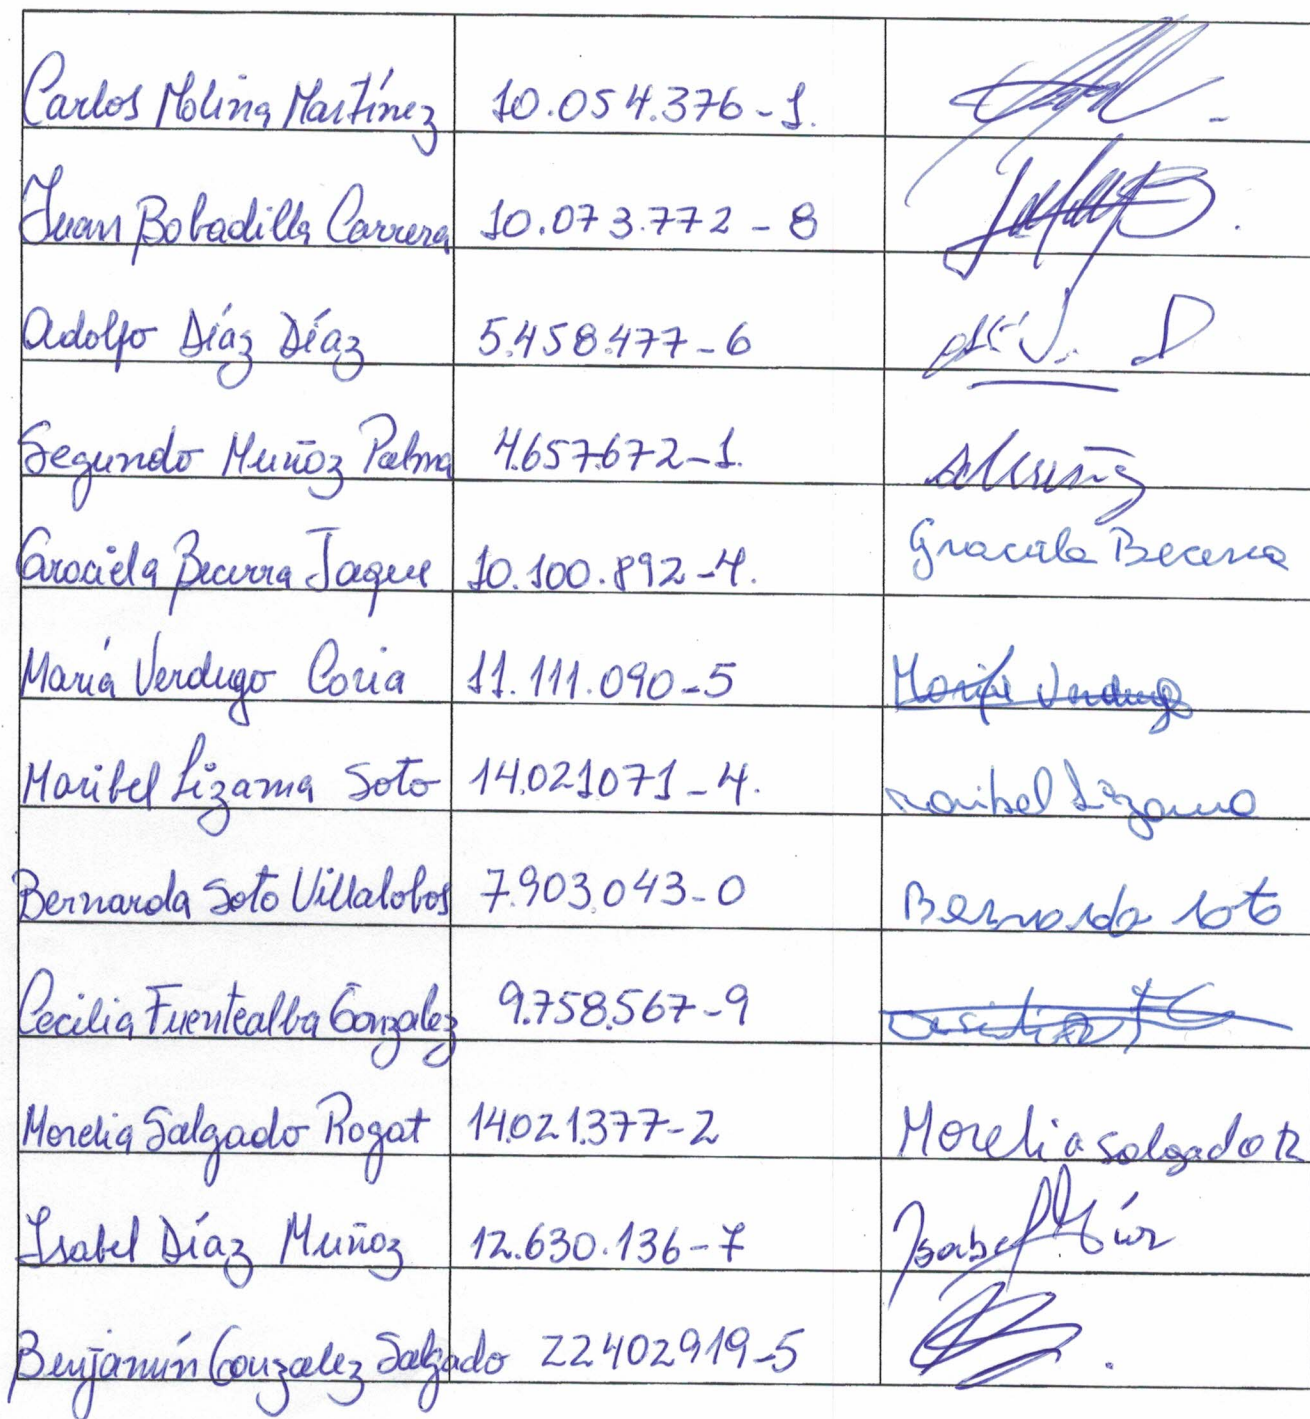 Carlos Molina Martínez 10.054.376-1.
Juan Bobadilla Carrera 10.073.772-8
Adolfo Díaz Díaz 5.458.477-6
Segundo Muñoz Palma 4.657.672-1. Muñoz
Graciela Becerra Jaque 10.100.892-4. Graciela Becerra
María Verdugo Coria 11.111.090-5 María Verdugo
Maribel Lizama Soto 14.021071-4. maribel Lizama
Bernarda Soto Villalobos 7.903.043-0 Bernarda soto
Cecilia Fuentealba Gonzalez 9.758.567-9
Morelia Salgado Rogat 14.021.377-2 Morelia Salgado R
Isabel Díaz Muñoz 12.630.136-7 Isabel Díaz
Benjamín Gonzalez Salgado 22402919-5